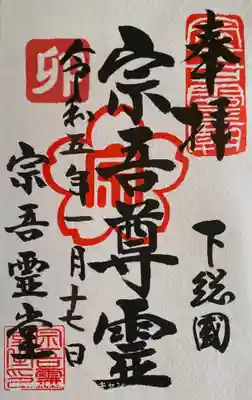 奉拝
下総國
宗吾尊霊
令和五年一月十七日
卯
宗吾霊堂